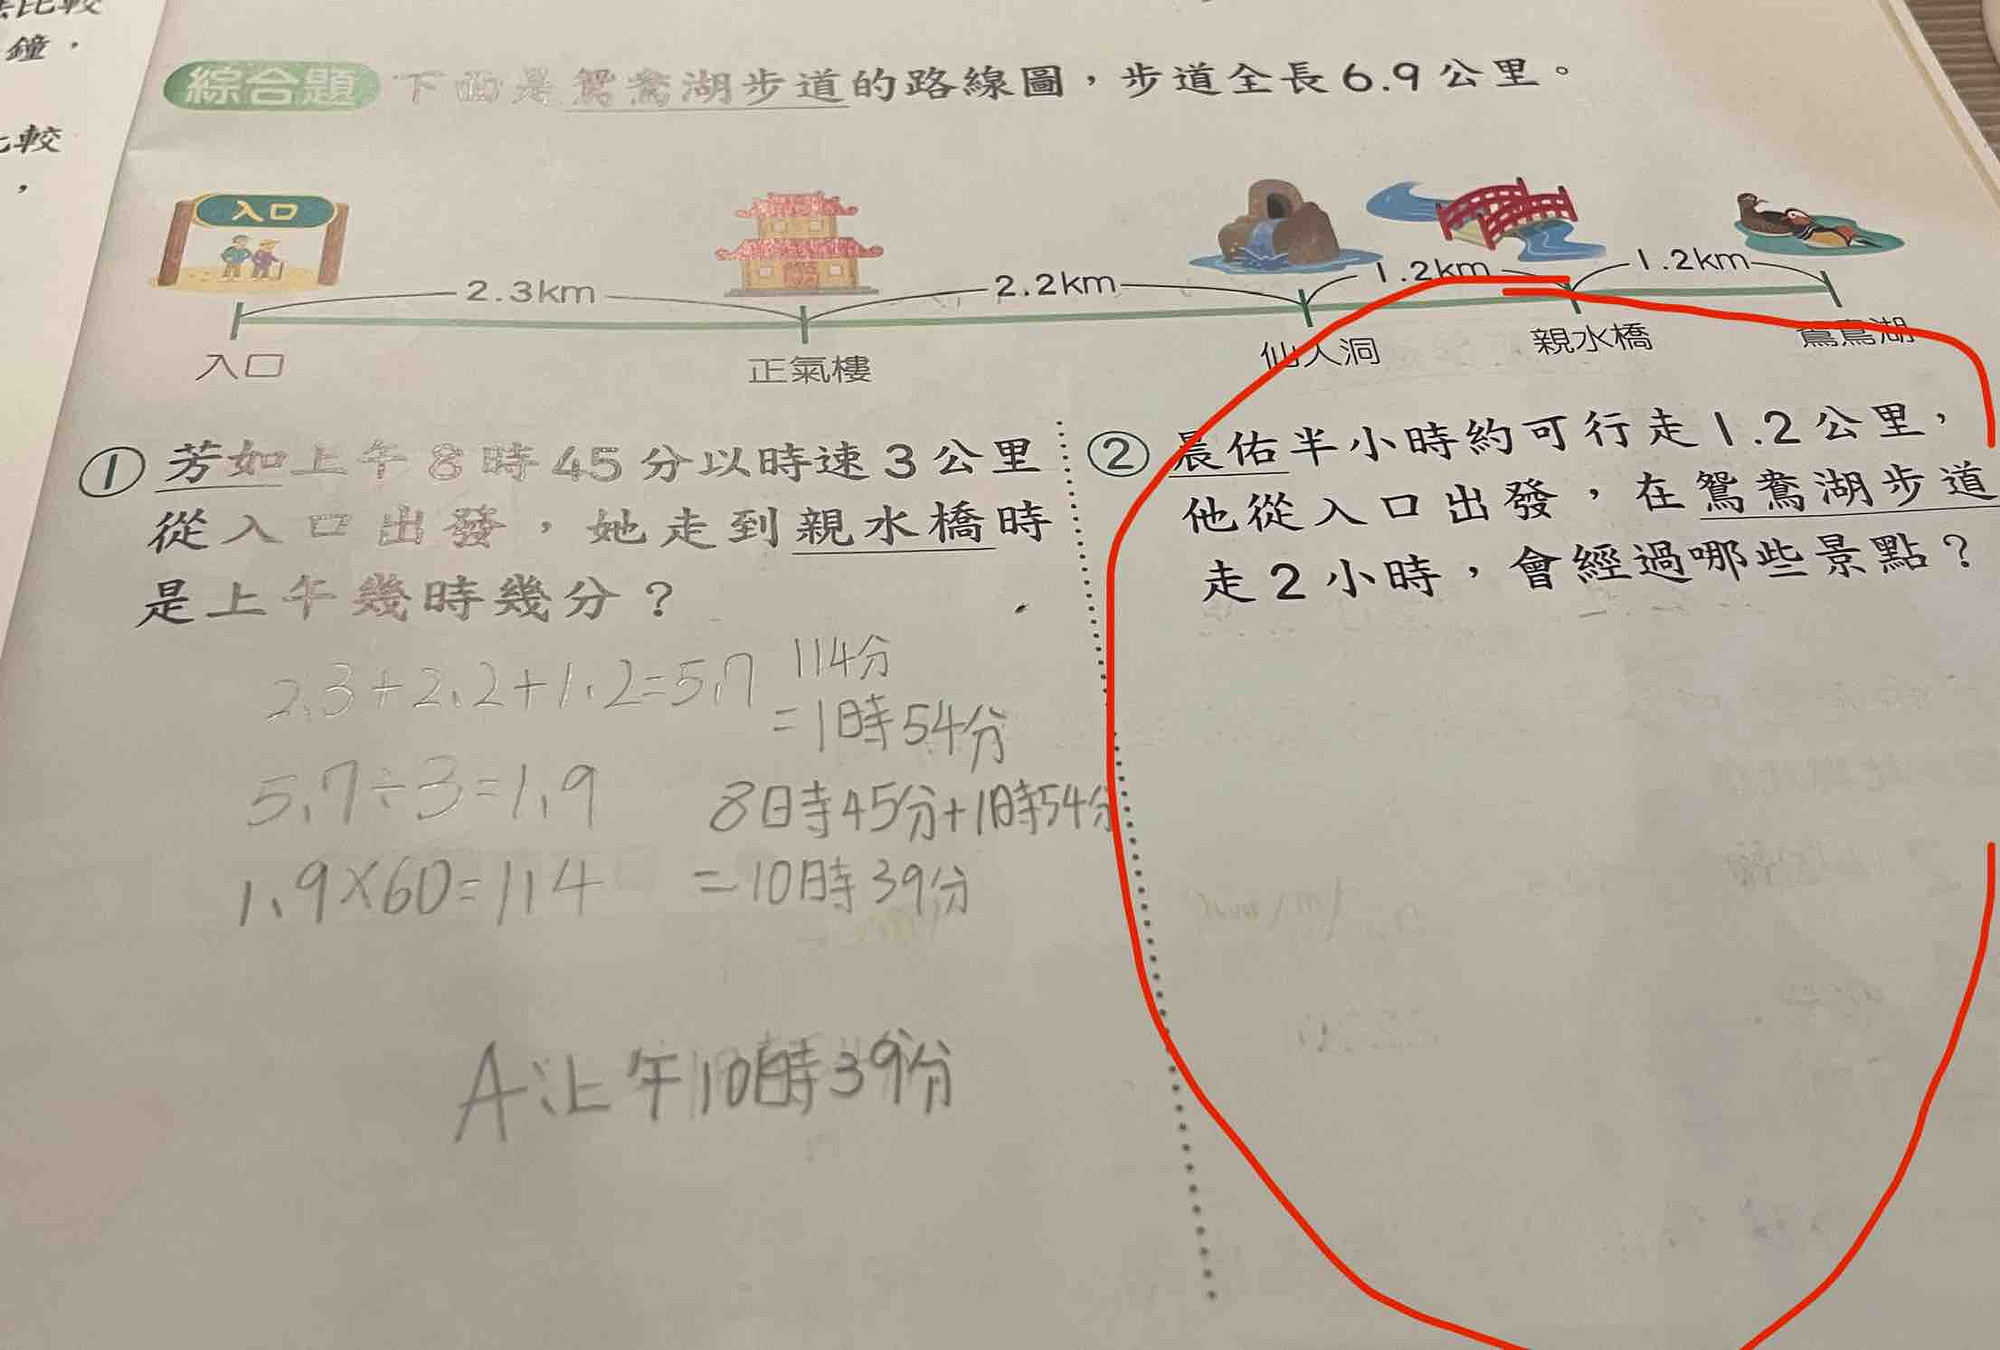 鐘，
比較
，
綜合題 下面是鴛鴦湖步道的路線圖，步道全長6.9公里。
入口
2.3km 2.2km 1.2km 1.2km
入口 正氣樓 仙人洞 親水橋 鴛鴦湖
① 芳如上午8時45分以時速3公里
從入口出發，她走到親水橋時
是上午幾時幾分？
2.3+2.2+1.2=5.7
5.7÷3=1.9
1.9×60=114
114分
=1時54分
8時45分+1時54分
=10時39分
A:上午10時39分
② 晨佑半小時約可行走1.2公里，
他從入口出發，在鴛鴦湖步道
走2小時，會經過哪些景點？